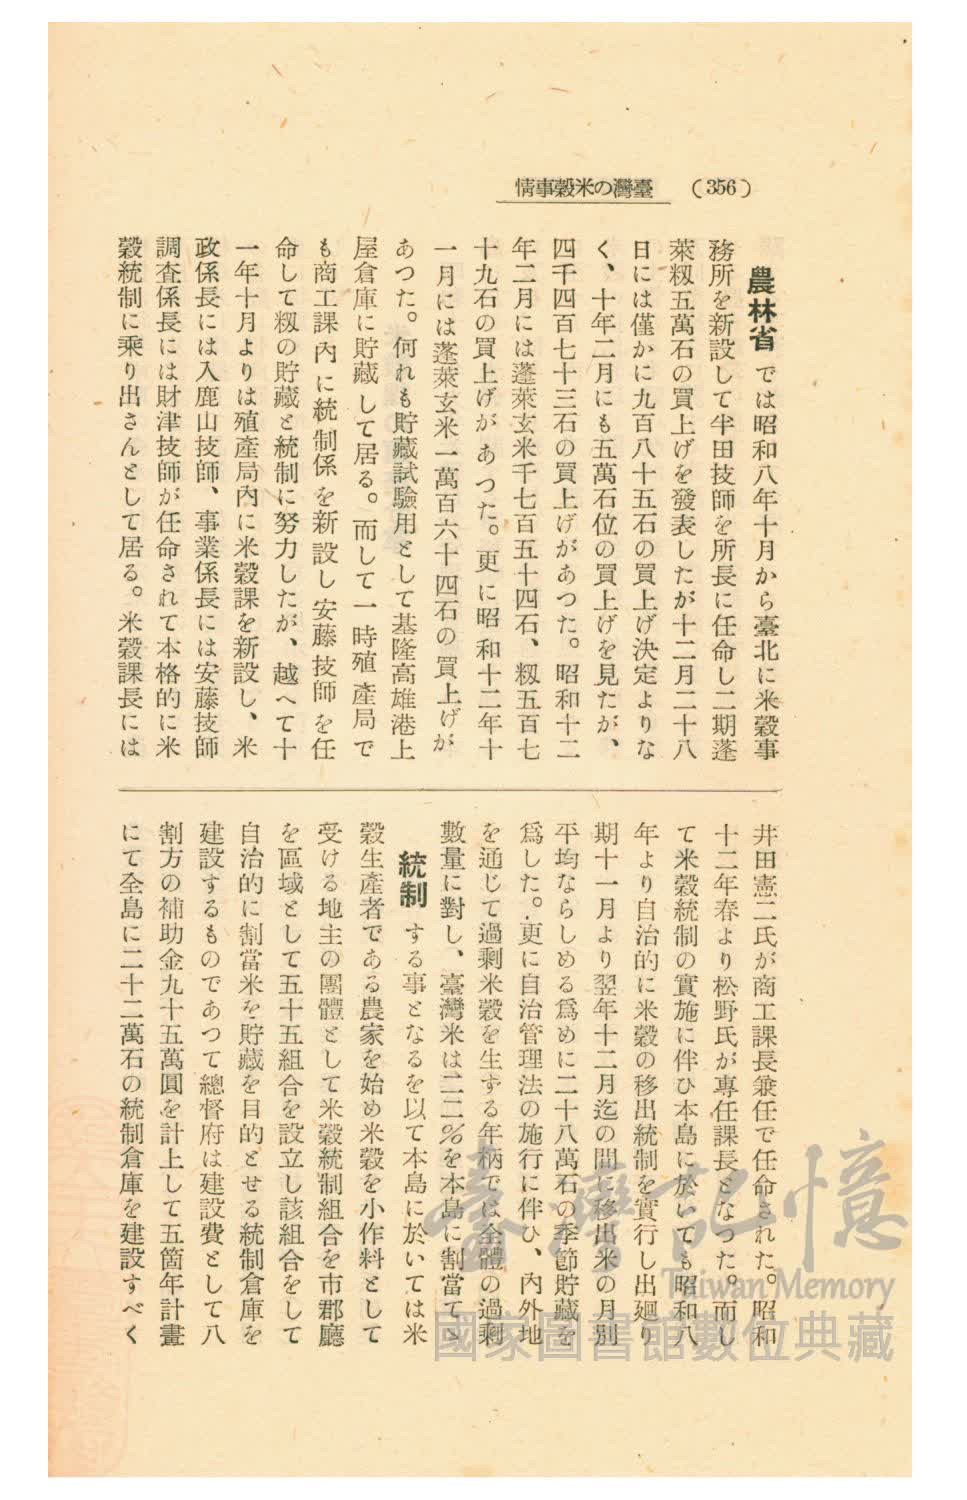 臺灣の米穀事情 (356)
農林省では昭和八年十月から臺北に米穀事
務所を新設して半田技師を所長に任命し二期蓬
萊籾五萬石の買上げを發表したが十二月二十八
日には僅かに九百八十五石の買上げ決定よりな
く、十年二月にも五萬石位の買上げを見たが、
四千四百七十三石の買上げがあつた。昭和十二
年二月には蓬萊玄米千七百五十四石、籾五百七
十九石の買上げがあつた。更に昭和十二年十
一月には蓬萊玄米一萬百六十四石の買上げが
あつた。何れも貯藏試驗用として基隆高雄港上
屋倉庫に貯藏して居る。而して一時殖產局で
も商工課內に統制係を新設し安藤技師を任
命して籾の貯藏と統制に努力したが、越へて十
一年十月よりは殖產局內に米穀課を新設し、米
政係長には入鹿山技師、事業係長には安藤技師
調査係長には財津技師が任命されて本格的に米
穀統制に乘り出さんとして居る。米穀課長には
井田憲二氏が商工課長兼任で任命された。昭和
十二年春より松野氏が專任課長となつた。而し
て米穀統制の實施に伴ひ本島に於いても昭和八
年より自治的に米穀の移出統制を實行し出廻り
期十一月より翌年十二月迄の間に移出米の月別
平均ならしめる爲めに二十八萬石の季節貯藏を
爲した。更に自治管理法の施行に伴ひ、內外地
を通じて過剩米穀を生ずる年柄では全體の過剩
數量に對し、臺灣米は二二%を本島に割當てゝ
統制する事となるを以て本島に於いては米
穀生產者である農家を始め米穀を小作料として
受ける地主の團體として米穀統制組合を市郡廳
を區域として五十五組合を設立し該組合をして
自治的に割當米を貯藏を目的とせる統制倉庫を
建設するものであつて總督府は建設費として八
割方の補助金九十五萬圓を計上して五箇年計畫
にて全島に二十二萬石の統制倉庫を建設すべく
臺灣記憶
Taiwan Memory
國家圖書館數位典藏